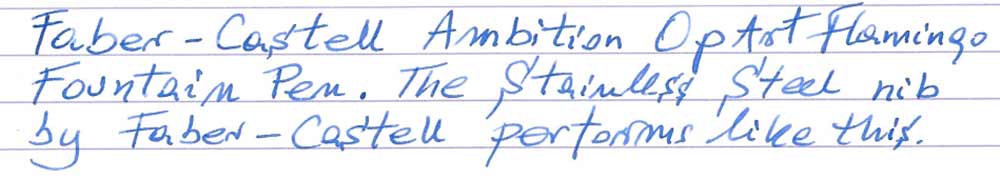 Faber-Castell Ambition OpArt Flamingo
Fountain Pen. The Stainless Steel nib
by Faber-Castell performs like this.